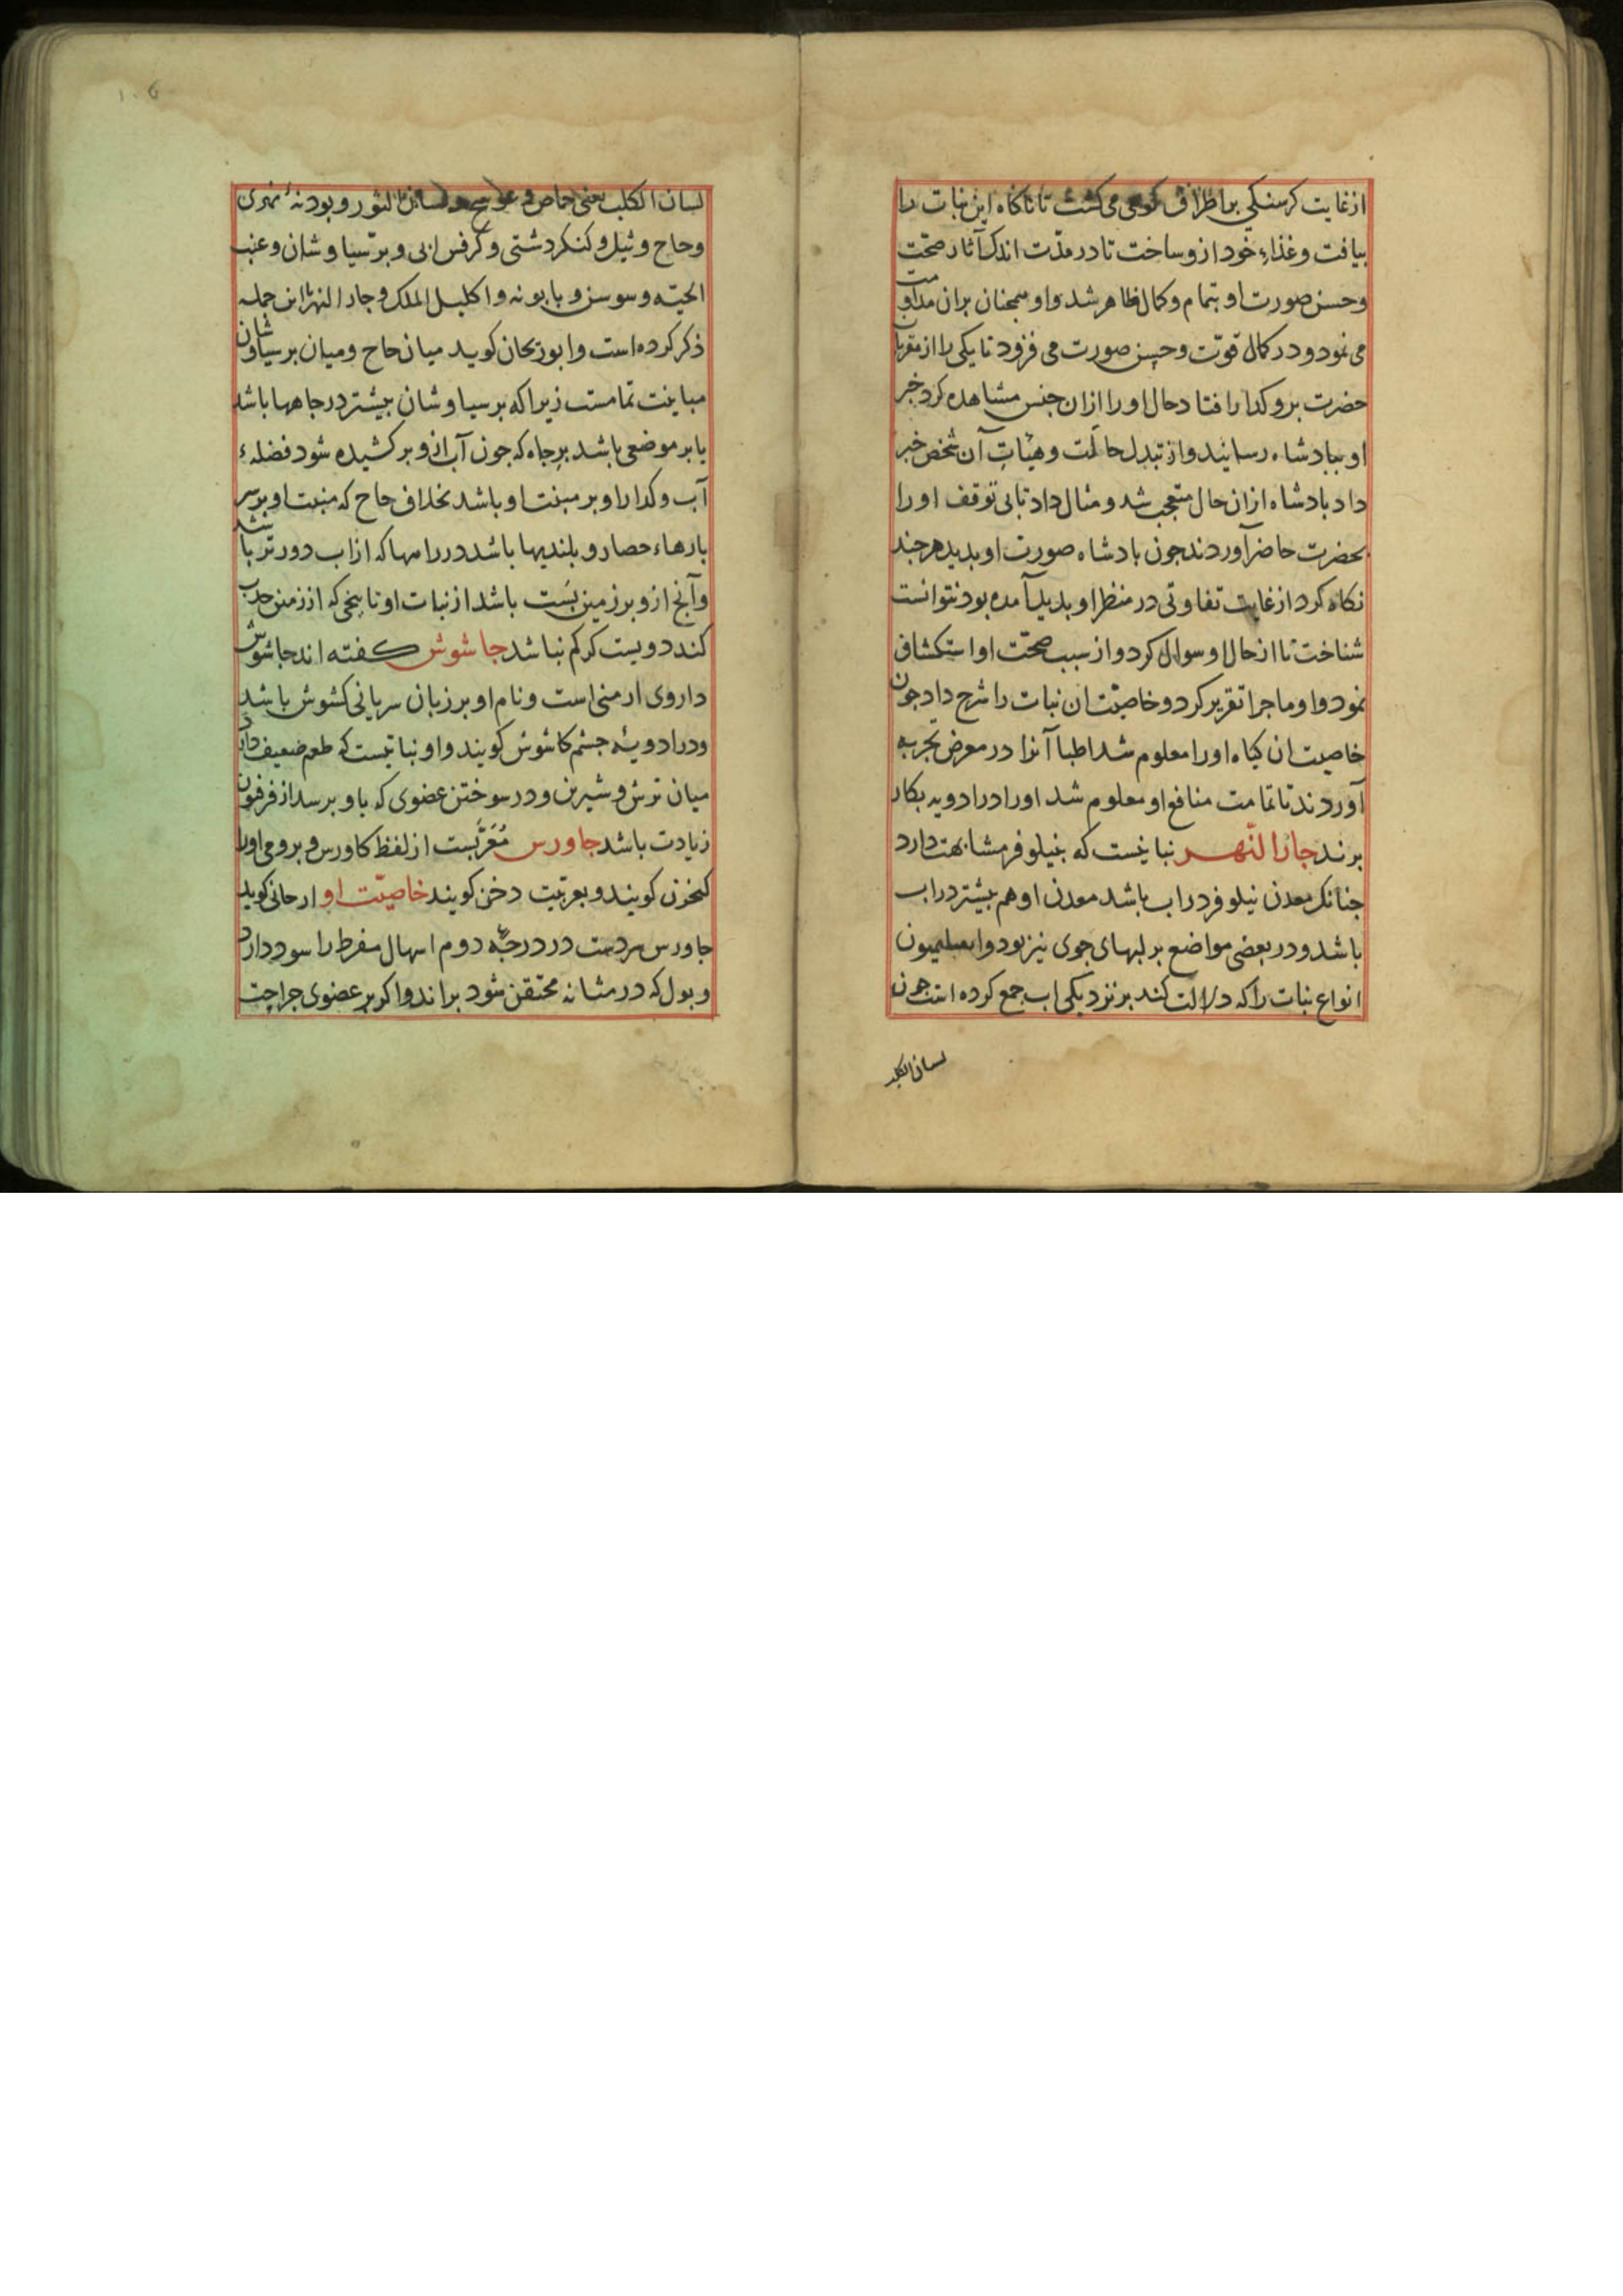 از غایت کرسنکی بر اطراف کوهی می کشت تا ناکاه این نبات را
بیافت و غذاء خود ازو ساخت تا در مدّت اندک آثار صحّت
و حسن صورت او بتمام و کمال ظاهر شد و او همچنان بران مداومت
می نمود و در کمال قوّت و حسن صورت می فزود تا یکی را از مقربان
حضرت برو کدار افتاد حال او را ازان جنس مشاهده کرد خبر
او ببادشاه رسانیند و از تبدل حالت و هیات آن شخص خبر
داد بادشاه ازان حال متعجب شد و مثال داد تا بی توقف او را
بحضرت حاضر آوردند جون بادشاه صورت او بدید هر جند
نکاه کرد از غایت تفاوتی در منظر او بدید آمده بود نتوانست
شناخت تا از حال او سوال کرد و از سبب صحّت او استکشاف
نمود و او ماجرا تقریر کرد و خاصیّت ان نبات را شرح داد جون
خاصیت ان کیاه او را معلوم شد اطبا آنرا در معرض تجربه
آوردند تا تمامت منافع او معلوم شد او را در ادویه بکار
برند جار النّهر نباتیست که بنیلوفر مشابهت دارد
جنانک معدن نیلوفر در اب باشد معدن او هم بیشتر در اب
باشد و در بعضی مواضع بر لبهای جوی نیز بود و
انواع نبات را که دلالت کند بر نزدیکی اب جمع کرده است جون
لسان الکلب
لسان الکلب یعنی حماض و عوسج و لسان الثور و بودنهٔ نهری
و حاج و ثیل و کنکر دشتی و کرفس ابی و برسیاوشان و عنب
الحیّه و سوسن و بابونه و اکلیل الملک و جار النهر این جمله
ذکر کرده است و ابوریحان کوید میان حاج و میان برسیاوشان
مباینت تمامست زیرا که برسیاوشان بیشتر در جاهها باشد
یا بر موضعی باشد بر جاه که جون آب ازو بر کشیده شود فضلهء
آب و کدار او بر منبت او باشد بخلاف حاج که منبت او بر سر
بارهاء حصار و بلندیها باشد در رامها که از اب دورتر باشد
و آنج ازو بر زمین بَست باشد از نبات او تا بیخی که از زمین جذب
کند دویست کز کم نباشد جاشوش کفته اند جاشوش
داروی ارمنی است و نام او بر زبان سریانی کشوش باشد
و در ادویهٔ جشم کاشوش کویند و او نباتیست که طعم ضعیف دارد
میان ترش و شیرین و در سوختن عضوی که باو برسد از فرفیون
زیادت باشد جاورس مُعَرَّبست از لفظ کاورس و برومی او را
کنخرن کویند و بعربیت دخن کویند خاصیّت او ارجانی کوید
جاورس سردست در درجهٔ دوم اسهال مفرط را سود دارد
و بول که در مثانه محتقن شود براند و اکر بر عضوی جراحت